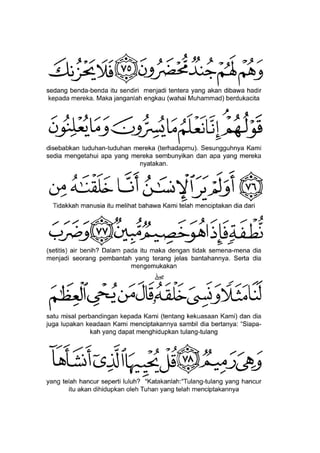 وَهُمْ لَهُمْ جُندٌ مُّحْضَرُونَ ٧٥ فَلَا يَحْزُنكَ
sedang benda-benda itu sendiri menjadi tentera yang akan dibawa hadir
kepada mereka. Maka janganlah engkau (wahai Muhammad) berdukacita
قَوْلُهُمْ ۘ إِنَّا نَعْلَمُ مَا يُسِرُّونَ وَمَا يُعْلِنُونَ
disebabkan tuduhan-tuduhan mereka (terhadapmu). Sesungguhnya Kami
sedia mengetahui apa yang mereka sembunyikan dan apa yang mereka
nyatakan.
٧٦ أَوَلَمْ يَرَ ٱلْإِنسَٰنُ أَنَّا خَلَقْنَٰهُ مِن
Tidakkah manusia itu melihat bahawa Kami telah menciptakan dia dari
نُّطْفَةٍ فَإِذَا هُوَ خَصِيمٌ مُّبِينٌ ٧٧ وَضَرَبَ
(setitis) air benih? Dalam pada itu maka dengan tidak semena-mena dia
menjadi seorang pembantah yang terang jelas bantahannya. Serta dia
mengemukakan
لَنَا مَثَلًا وَنَسِىَ خَلْقَهُۥ ۖ قَالَ مَن يُحْىِ ٱلْعِظَٰمَ
satu misal perbandingan kepada Kami (tentang kekuasaan Kami) dan dia
juga lupakan keadaan Kami menciptakannya sambil dia bertanya: “Siapa-
kah yang dapat menghidupkan tulang-tulang
وَهِىَ رَمِيمٌ ٧٨ قُلْ يُحْيِيهَا ٱلَّذِىٓ أَنشَأَهَآ
yang telah hancur seperti luluh? “Katakanlah:“Tulang-tulang yang hancur
itu akan dihidupkan oleh Tuhan yang telah menciptakannya